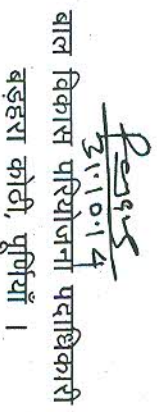 31.10.14
बाल विकास परियोजना पदाधिकारी
बड़हरा कोठी, पुर्णियाँ ।